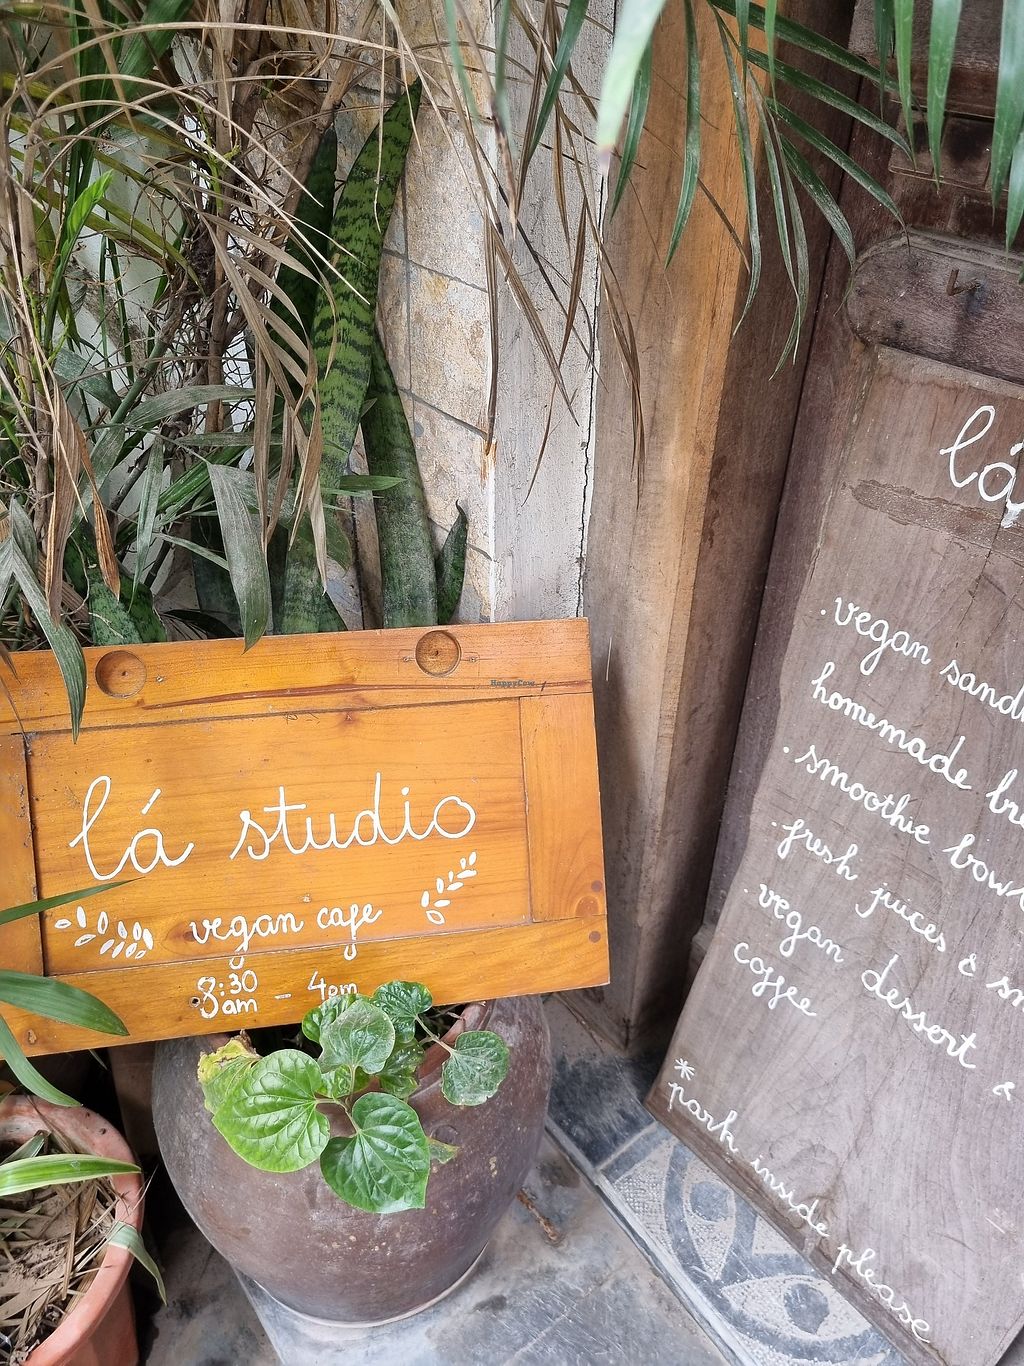 HappyCow
lá studio
vegan cafe
8:30 am – 4pm
lá
. vegan
homemade
. smoothie bowls
. fresh juices &
. vegan dessert &
coffee
* park inside please